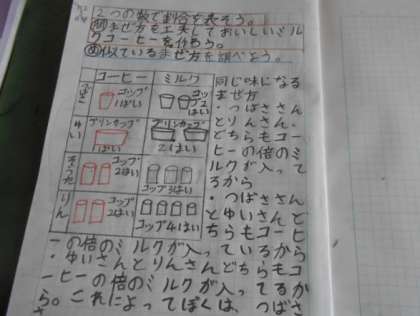 2つの数で割合を表そう。
㋱まぜ方を工夫しておいしいミル
クコーヒーを作ろう。
似ているまぜ方を調べよう。
コーヒー ミルク
コップ1ぱい コップ2はい
ゆい プリンカップ1ぱい プリンカップ2はい
そうた コップ2はい コップ3ばい
りん コップ2はい コップ4はい
同じ味になる
まぜ方
・つばささん
とりんさん、
どちらもコー
ヒーの倍のミ
ルクが入って
るから
・つばささん
とゆいさんと
ちらもコーヒ
ーの倍のミルクが入っているから
・ゆいさんとりんさんどちらもコ
ーヒーの倍のミルクが入ってるか
ら。これによってぼくは、つばさ